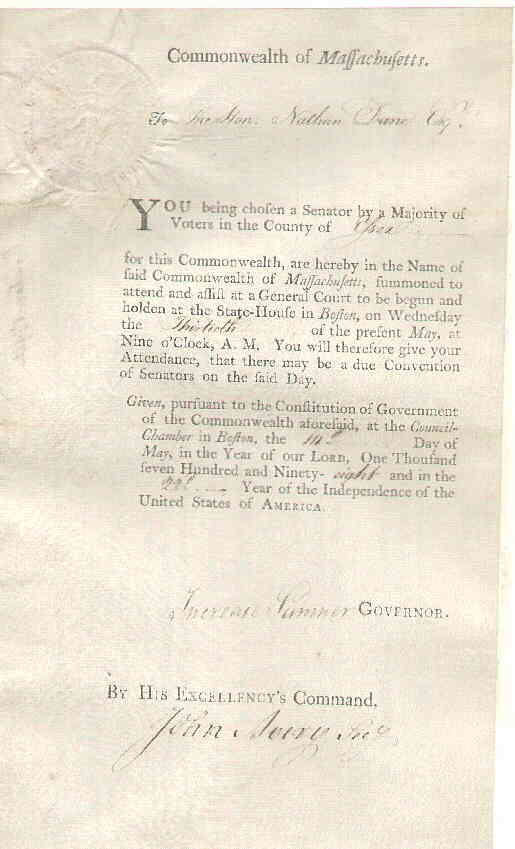 Commonwealth of Maſſachuſetts.
To the Hon. Nathan Dane Esqr.
YOU being choſen a Senator by a Majority of
Voters in the County of Essex
for this Commonwealth, are hereby in the Name of
ſaid Commonwealth of Maſſachuſetts, ſummoned to
attend and aſſiſt at a General Court to be begun and
holden at the State-Houſe in Boſton, on Wedneſday
the Thirtieth of the preſent May, at
Nine o'Clock, A. M. You will therefore give your
Attendance, that there may be a due Convention
of Senators on the ſaid Day.
Given, purſuant to the Conſtitution of Government
of the Commonwealth aforeſaid, at the Council-
Chamber in Boſton, the 14th Day of
May, in the Year of our LORD, One Thouſand
ſeven Hundred and Ninety-eight and in the
22d Year of the Independence of the
United States of AMERICA.
Increase Sumner GOVERNOR.
BY HIS EXCELLENCY'S Command,
John Avery Secy